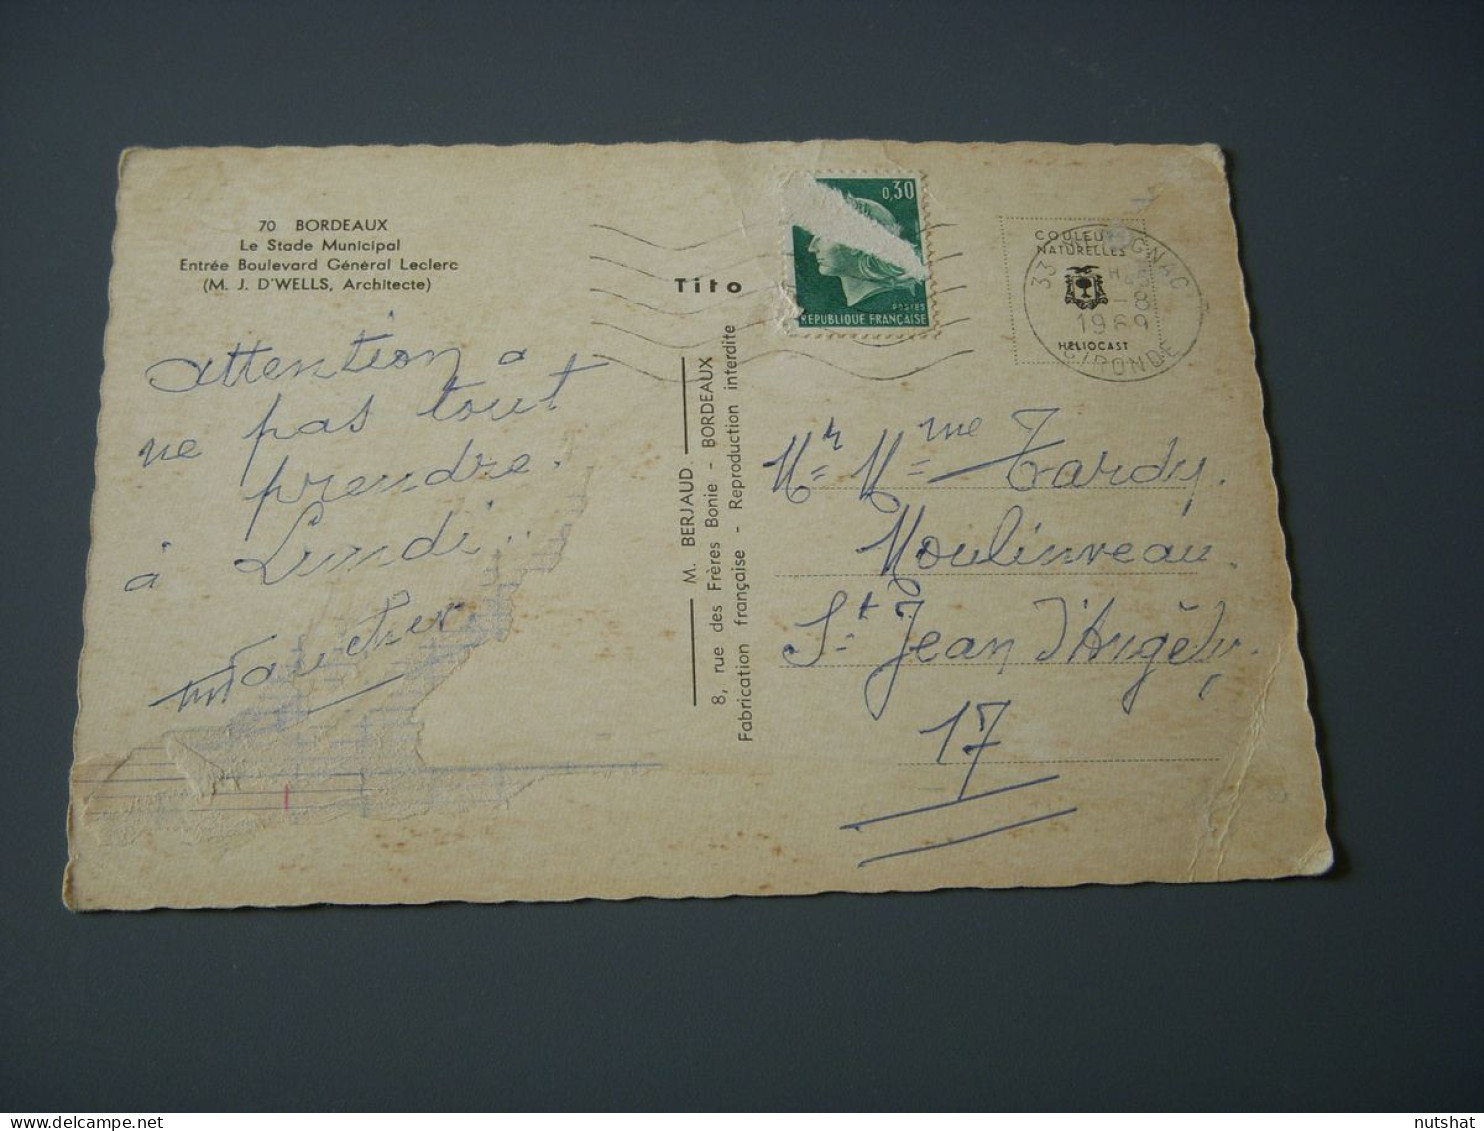 70 BORDEAUX
Le Stade Municipal
Entrée Boulevard Général Leclerc
(M. J. D'WELLS, Architecte)
attention a
ne pas tout
prendre.
à Lundi...
Tito
M. BERJAUD
8, rue des Frères Bonie - BORDEAUX
Fabrication française - Reproduction interdite
0,30
POSTES
REPUBLIQUE FRANÇAISE
COULEURS
NATURELLES
HELIOCAST
33
1969
GIRONDE
Mr Mme Tardy.
Moulinveau
St Jean d'Angély.
17
nutshat